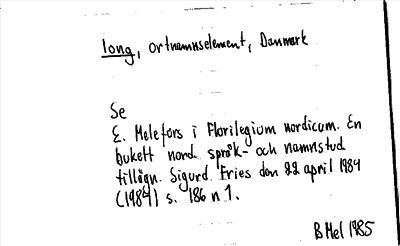 long, ortnamnselement, Danmark
Se
E. Melefors i Florilegium nordicum. En
bukett nord. språk- och namnstud
tillägn. Sigurd Fries den 22 april 1984
(1984) s. 186 n 1.
B Mel 1985